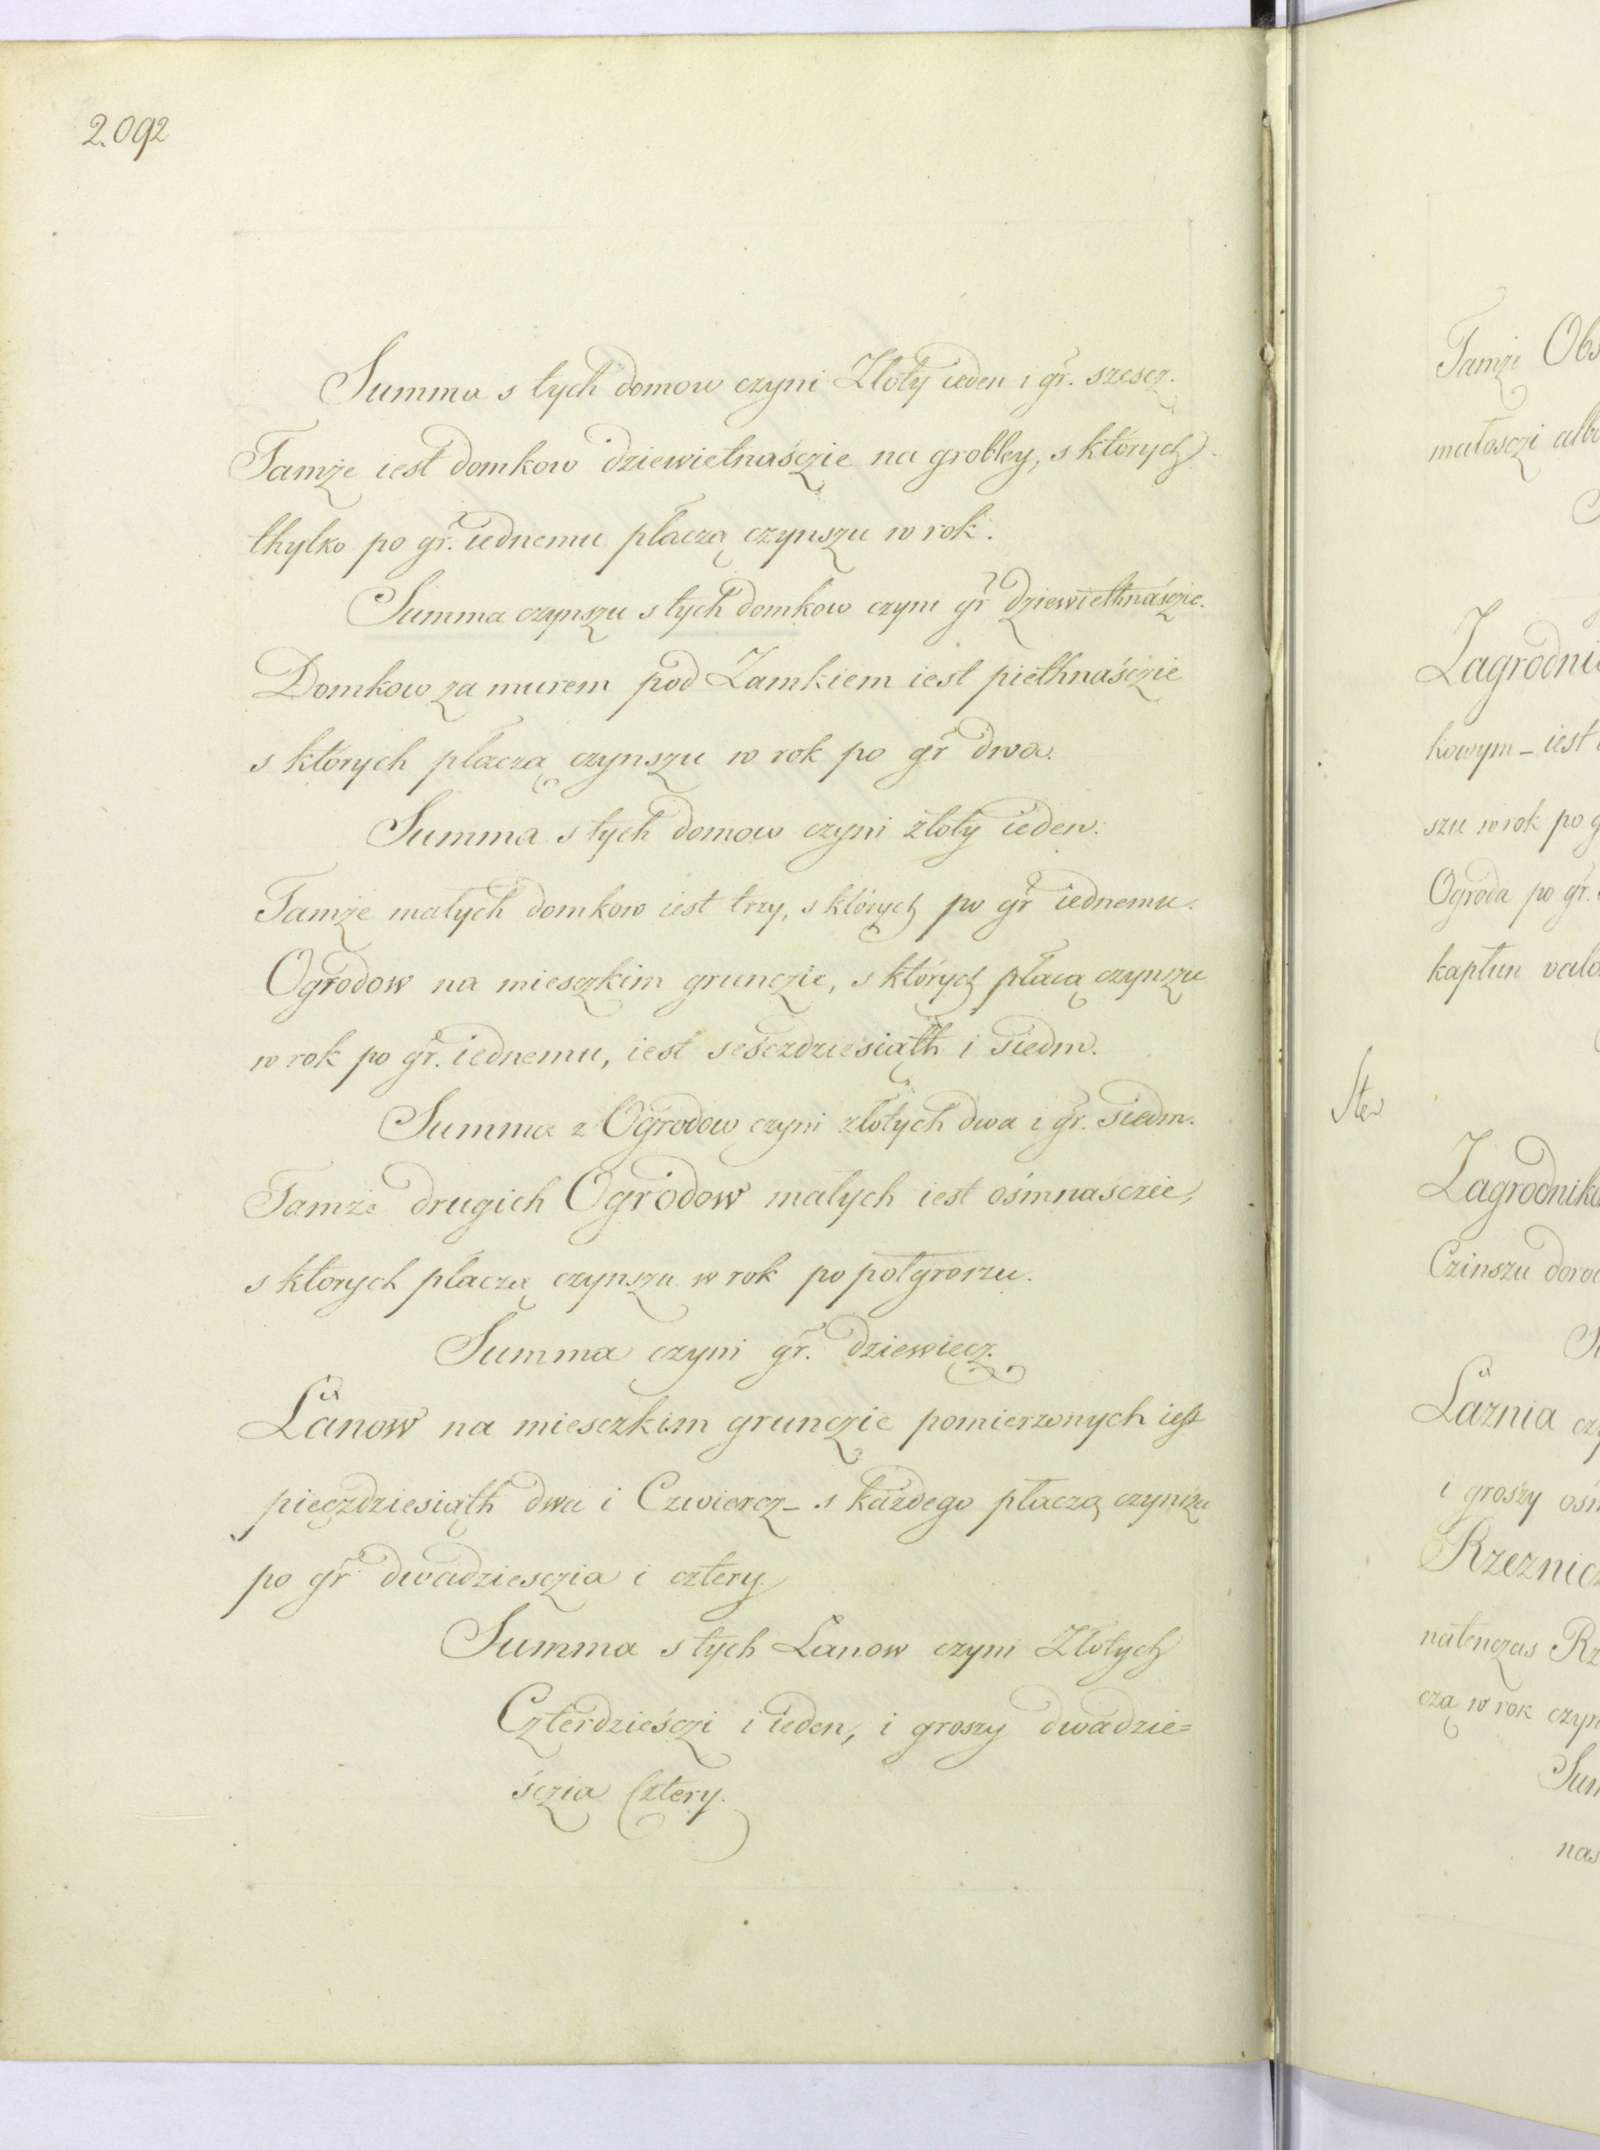 2.092
Summa s tych domow czyni Złoty ieden i gr. szescz.
Tamże iest domkow dziewietnaśczie na grobley, s których
thylko po gr. iednemu płaczą czynszu w rok.
Summa czynszu s tych domkow czyni gr dziewiethnaśczie.
Domkow za murem pod Zamkiem iest piethnaśczie
s których płaczą czynszu w rok po gr dwa.
Summa s tych domow czyni złoty ieden.
Tamże małych domkow iest trzy, s których po gr iednemu.
Ogrodow na miesczkim grunczie, s których płacą czynszu
w rok po gr. iednemu, iest seśczdziesiąth i siedm.
Summa z Ogrodow czyni złotych dwa i gr. siedm.
Tamże drugich Ogrodow małych iest ośmnasczie,
s ktorych płaczą czynszu w rok po połgroszu.
Summa czyni gr. dziewięcz.
Łanow na miesczkim grunczie pomierzonych iest
pięczdziesiąth dwa i Czwiercz_ s każdego płaczą czynszu
po gr dwadziesczia i cztery
Summa s tych Łanow czyni Złotych
Czterdzieśczi i ieden, i groszy dwadzie=
śczia Cztery.
Tamże
małosczi albo
kowym_ iest
szu w rok po
Ogroda po gr.
kapłun
Czinszu
Łaznia
i groszy
natenczas
czą w rok